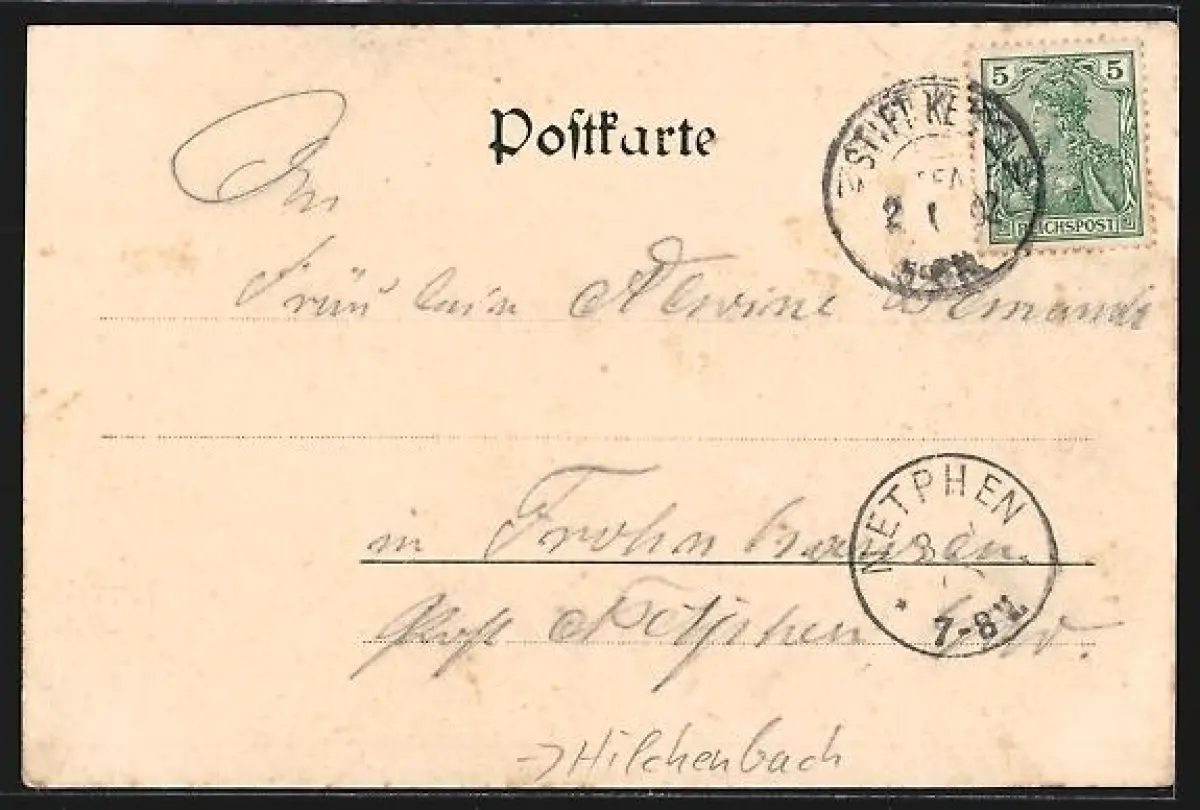 Postkarte
5 5
REICHSPOST
STIFT KE
2 1 02
An
Fräulein Alwine
in Frohnhausen
NETPHEN
7-8 V.
Post Netphen
→ Hilchenbach